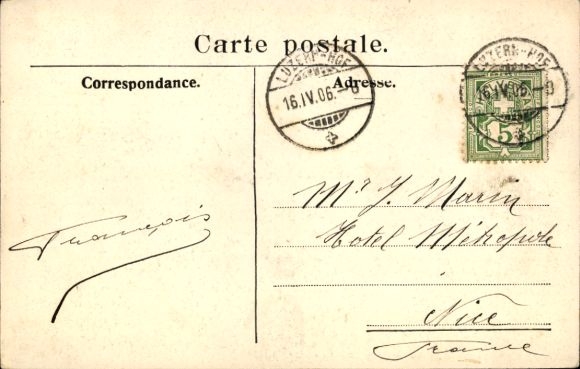 Carte postale.
Correspondance.
Adresse.
LUZERN-HOF
16.IV.06.-0
LUZERN-HOF
16.IV.06.-0
5
Mr J. Marin
Hotel Métropole
Nice
France
François